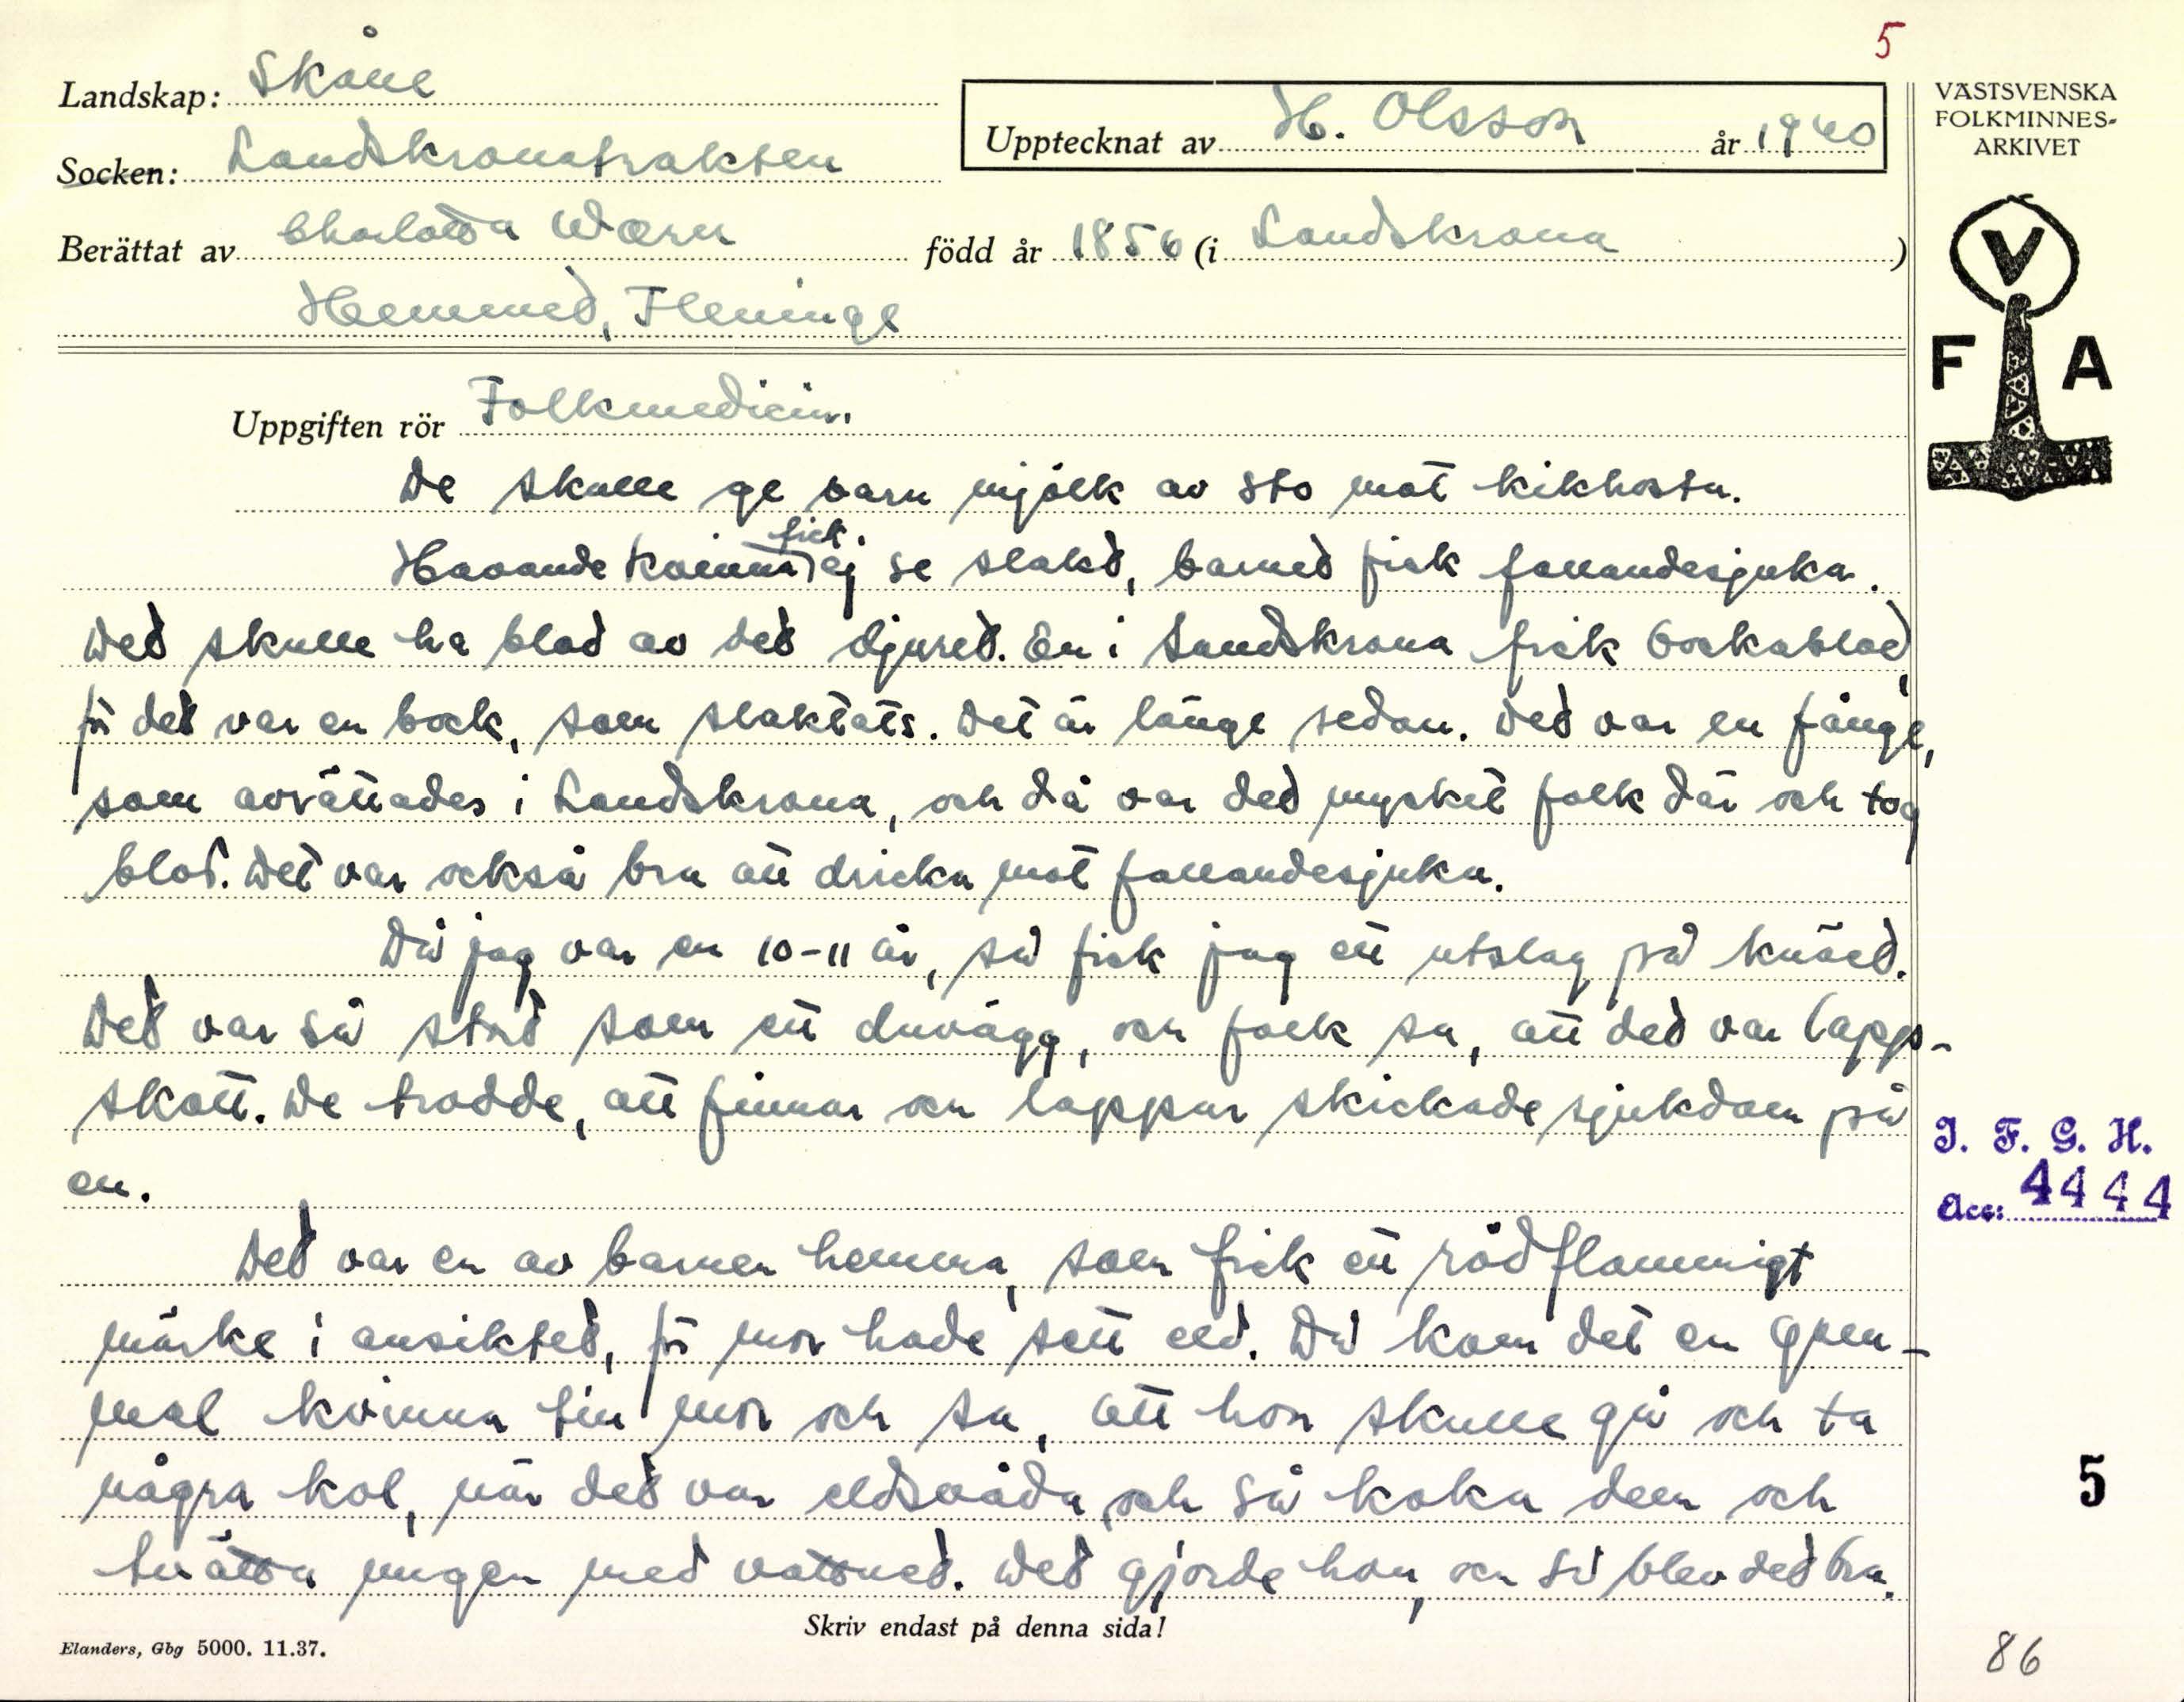 5
Landskap: Skåne
Upptecknat av H. Olsson år 1940
VÄSTSVENSKA
FOLKMINNES-
ARKIVET
Socken: Landskronatrakten
Berättat av Charlotta Wærn född år 1856 (i Landskrona)
Hemmed, Fleninge
V
F A
Uppgiften rör Folkmedicin.
De skulle ge barn mjölk av sto mot kikhosta.
fick
Havande kvinna ej se slakt, barned fick fallandesjuka.
Ded skulle ha blod av ded djured. En i Landskrona fick bockablod,
för ded var en bock, som slaktats. Det är länge sedan. Ded var en fånge,
som avrättades i Landskrona, och då var ded mycket folk där och tog
blod. Det var också bra att dricka mot fallandesjuka.
Då jag var en 10-11 år, så fick jag ett utslag på knäed.
Ded var så stort som ett duvägg, och folk sa, att ded var lapp-
skott. De trodde, att finnar och lappar skickade sjukdom på
en.
I. F. G. H.
Acc: 4444
Ded var en av barnen hemma, som fick ett rödflammigt
märke i ansikted, för mor hade sett eld. Då kom det en gam-
mal kvinna till mor och sa, att hon skulle gå och ta
några kol, när ded var eldsvåda, och så koka dem och
tvätta ungen med vattned. Ded gjorde hon, och så blev ded bra.
5
Skriv endast på denna sida!
Elanders, Gbg 5000. 11.37.
86